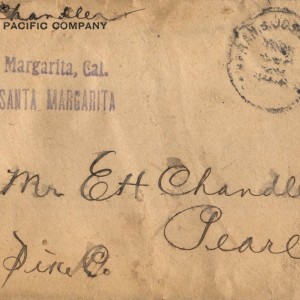 Chandler
PACIFIC COMPANY
Margarita, Cal.
SANTA MARGARITA
Mr. E H Chandle
Pearl
Pike Co.